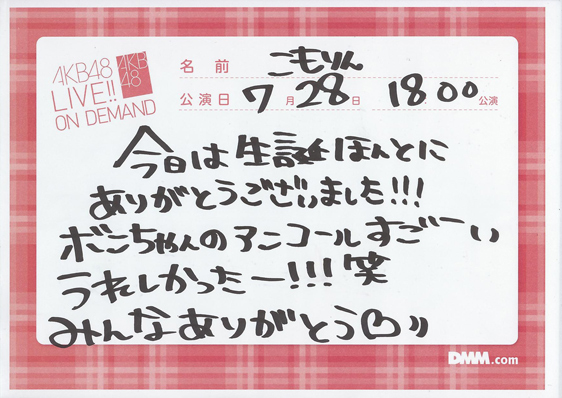 AKB48
LIVE!!
ON DEMAND
AKB
48
名前 こもりん
公演日 7月28日 18:00公演
今日は生誕ほんとに
ありがとうございました!!!
ボこちゃんのアンコールすごーい
うれしかったー!!!笑
みんなありがとう
DMM.com